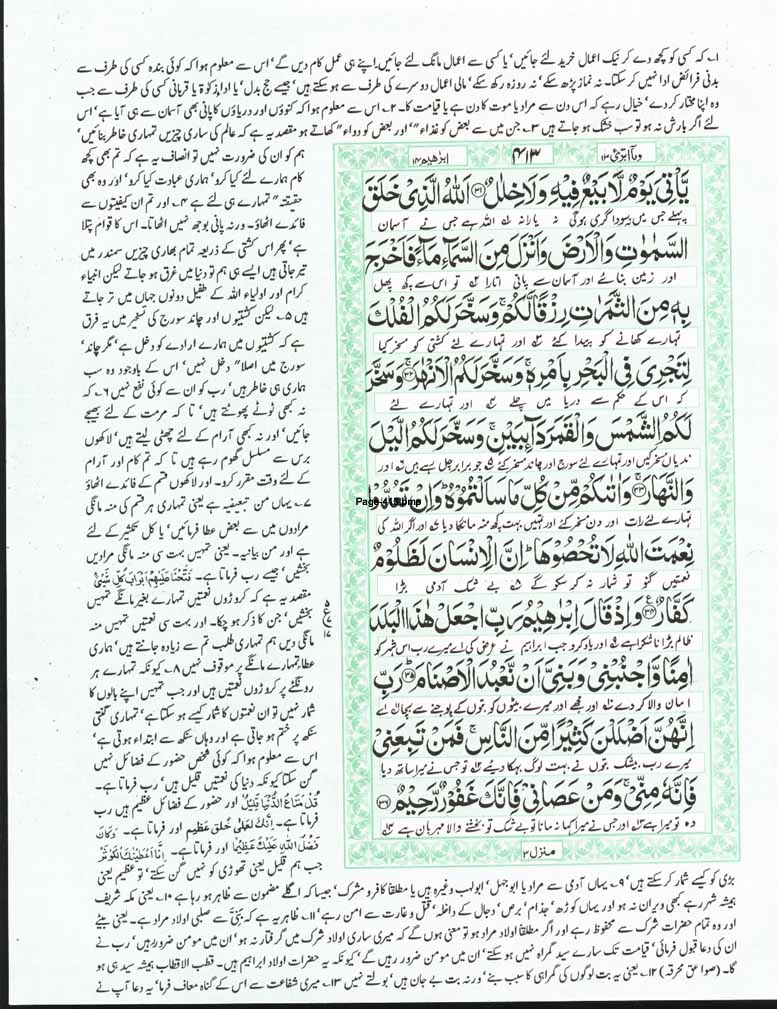 ۱۔ کہ کسی کو کچھ دے کر نیک اعمال خرید لئے جائیں' یا کسی سے اعمال مانگ لئے جائیں۔ اپنے ہی عمل کام دیں گے' اس سے معلوم ہوا کہ کوئی بندہ کسی کی طرف سے
بدنی فرائض ادا نہیں کر سکتا۔ نہ نماز پڑھ سکے' نہ روزہ رکھ سکے' مالی اعمال دوسرے کی طرف سے ہو سکتے ہیں' جیسے حج بدل' یا اداء زکوۃ یا قربانی کسی کی طرف سے جب
وہ اپنا مختار کر دے' خیال رہے کہ اس دن سے مراد یا موت کا دن ہے یا قیامت کا۔ ۲۔ اس سے معلوم ہوا کہ کنوؤں اور دریاؤں کا پانی بھی آسمان سے ہی آیا ہے' اس
لئے اگر بارش نہ ہو تو سب خشک ہو جاتے ہیں ۳۔ جن میں سے بعض کو غذاء" اور بعض کو دواء" کھاتے ہو مقصد یہ ہے کہ عالم کی ساری چیزیں تمہاری خاطر بنائیں'
وما ابرئ ۱۳
۴۱۳
ابرٰھیم ۱۴
یَّاْتِیَ یَوْمٌ لَّا بَیْعٌ فِیْهِ وَلَا خِلٰلٌ ﴿۳۱﴾ اَللّٰهُ الَّذِیْ خَلَقَ
پہلے جس میں نہ سوداگری ہوگی نہ یارانہ اللہ ہے جس نے آسمان
السَّمٰوٰتِ وَالْاَرْضَ وَاَنْزَلَ مِنَ السَّمَآءِ مَآءً فَاَخْرَجَ
اور زمین بنائے اور آسمان سے پانی اتارا تو اس سے کچھ پھل
بِهٖ مِنَ الثَّمَرٰتِ رِزْقًا لَّكُمْ ۚ وَسَخَّرَ لَكُمُ الْفُلْكَ
تمہارے کھانے کو پیدا کئے اور تمہارے لئے کشتی کو مسخر کیا
لِتَجْرِیَ فِی الْبَحْرِ بِاَمْرِهٖ ۚ وَسَخَّرَ لَكُمُ الْاَنْهٰرَ ﴿۳۲﴾ وَسَخَّرَ
کہ اس کے حکم سے دریا میں چلے اور تمہارے لئے
لَكُمُ الشَّمْسَ وَالْقَمَرَ دَآئِبَیْنِ ۚ وَسَخَّرَ لَكُمُ الَّیْلَ
ندیاں مسخر کیں اور تمہارے لئے سورج اور چاند مسخر کئے جو برابر چل رہے ہیں اور
وَالنَّهَارَ ﴿۳۳﴾ وَاٰتٰىكُمْ مِّنْ كُلِّ مَا سَاَلْتُمُوْهُ ؕ وَاِنْ تَعُدُّوْا
Page-413.bmp
تمہارے لئے رات اور دن مسخر کئے اور تمہیں بہت کچھ منہ مانگا دیا اور اگر اللہ کی
نِعْمَتَ اللّٰهِ لَا تُحْصُوْهَا ؕ اِنَّ الْاِنْسَانَ لَظَلُوْمٌ
نعمتیں گنو تو شمار نہ کر سکو گے بے شک آدمی بڑا
كَفَّارٌ ﴿۳۴﴾ وَاِذْ قَالَ اِبْرٰهِیْمُ رَبِّ اجْعَلْ هٰذَا الْبَلَدَ
ظالم بڑا ناشکرا ہے اور یاد کرو جب ابراہیم نے عرض کی اے میرے رب اس شہر کو
اٰمِنًا وَّاجْنُبْنِیْ وَبَنِیَّ اَنْ نَّعْبُدَ الْاَصْنَامَ ﴿۳۵﴾ رَبِّ
امان والا کر دے اور مجھے اور میرے بیٹوں کو بتوں کے پوجنے سے بچا اے
اِنَّهُنَّ اَضْلَلْنَ كَثِیْرًا مِّنَ النَّاسِ ۚ فَمَنْ تَبِعَنِیْ
میرے رب بیشک بتوں نے بہت لوگ بہکا دیئے تو جس نے میرا ساتھ دیا
فَاِنَّهٗ مِنِّیْ ۚ وَمَنْ عَصَانِیْ فَاِنَّكَ غَفُوْرٌ رَّحِیْمٌ ﴿۳۶﴾
وہ تو میرا ہے اور جس نے میرا کہا نہ مانا تو بے شک تو بخشنے والا مہربان ہے
منزل ۳
ہم کو ان کی ضرورت نہیں تو انصاف یہ ہے کہ تم بھی کچھ
کام ہمارے لئے کیا کرو' ہماری عبادت کیا کرو' اور وہ بھی
حقیقتہ" تمہارے ہی لئے ہے ۴۔ اور تم ان کیفیتوں سے
فائدے اٹھاؤ۔ ورنہ پانی بوجھ نہیں اٹھاتا۔ اس کا قوام پتلا
ہے' پھر اس کشتی کے ذریعہ تمام بھاری چیزیں سمندر میں
تیر جاتی ہیں ایسے ہی ہم تو دنیا میں غرق ہو جاتے لیکن انبیاء
کرام اور اولیاء اللہ کے طفیل دونوں جہاں میں تر جاتے
ہیں ۵۔ لیکن کشتیوں اور چاند سورج کی تسخیر میں یہ فرق
ہے کہ کشتیوں میں ہمارے ارادے کو دخل ہے' مگر چاند'
سورج میں اصلا" دخل نہیں' اس کے باوجود وہ سب
ہماری ہی خاطر ہیں' رب کو ان سے کوئی نفع نہیں ۶۔ کہ
نہ کبھی ٹوٹے پھوٹتے ہیں' تا کہ مرمت کے لئے بھیجے
جائیں' اور نہ کبھی آرام کے لئے چھٹی لیتے ہیں' لاکھوں
برس سے مسلسل گھوم رہے ہیں تا کہ تم کام اور آرام
کے لئے وقت مقرر کرو۔ اور لاکھوں قسم کے فائدے اٹھاؤ
۷۔ یہاں من تبعیضیہ ہے یعنی تمہاری ہر قسم کی منہ مانگی
مرادوں میں سے بعض عطا فرمائیں' یا کل تکثیر کے لئے
ہے اور من بیانیہ۔ یعنی تمہیں بہت سی منہ مانگی مرادیں
بخشیں' جیسے رب فرماتا ہے۔ فَتَحْنَا عَلَیْهِمْ اَبْوَابَ كُلِّ شَیْءٍ
مقصد یہ ہے کہ کروڑوں نعمتیں تمہارے بغیر مانگے تمہیں
بخشیں' جن کا ذکر ہو چکا۔ اور بہت سی نعمتیں تمہیں منہ
مانگی دیں ہم تمہاری طلب تم سے زیادہ جانتے ہیں' ہماری
عطا تمہارے مانگنے پر موقوف نہیں ۸۔ کیونکہ تمہارے ہر
رونگٹے پر کروڑوں نعمتیں ہیں اور جب تمہیں اپنے بالوں کا
شمار نہیں تو ان نعمتوں کا شمار کیسے ہو سکتا ہے' تمہاری گنتی
سنکھ پر ختم ہو جاتی ہے اور وہاں سنکھ سے ابتداء ہوتی ہے'
اس سے معلوم ہوا کہ کوئی شخص حضور کے فضائل نہیں
گن سکتا کیونکہ دنیا کی نعمتیں قلیل ہیں' رب فرماتا ہے۔
قُلْ مَتَاعُ الدُّنْیَا قَلِیْلٌ اور حضور کے فضائل عظیم ہیں رب
فرماتا ہے۔ اِنَّكَ لَعَلٰى خُلُقٍ عَظِیْمٍ اور فرماتا ہے۔ وَكَانَ
فَضْلُ اللّٰهِ عَلَیْكَ عَظِیْمًا اور فرماتا ہے۔ اِنَّا اَعْطَیْنٰكَ الْكَوْثَرَ
جب ہم قلیل یعنی تھوڑی کو نہیں گن سکتے' تو عظیم یعنی
بڑی کو کیسے شمار کر سکتے ہیں' ۹۔ یہاں آدمی سے مراد یا ابوجہل' ابولہب وغیرہ ہیں یا مطلقا کافر و مشرک' جیسا کہ اگلے مضمون سے ظاہر ہو رہا ہے ۱۰۔ یعنی مکہ شریف
ہمیشہ شہر رہے کبھی ویران نہ ہو اور یہاں کوڑھ' جذام' برص' دجال کے داخلہ' قتل و غارت سے امن رہے' ۱۱۔ ظاہر یہ ہے کہ بَنِیَّ سے صلبی اولاد مراد ہے۔ یعنی بیٹے
اور وہ تمام حضرات شرک سے محفوظ رہے اور اگر مطلقا اولاد مراد ہو تو معنی ہوں گے کہ میری ساری اولاد شرک میں گرفتار نہ ہو' ان میں مومن ضرور رہیں' رب نے
ان کی دعا قبول فرمائی' قیامت تک سارے سید گمراہ نہیں ہو سکتے' ان میں مومن ضرور رہیں گے' کیونکہ یہ حضرات اولاد ابراہیم ہیں۔ قطب الاقطاب ہمیشہ سید ہی ہو
گا۔ (صواعق محرقہ) ۱۲۔ یعنی یہ بت لوگوں کی گمراہی کا سبب بنے' ورنہ بت بے جان ہیں' بولتے نہیں ۱۳۔ میری شفاعت سے اس کے گناہ معاف فرما' یہ دعا آپ نے